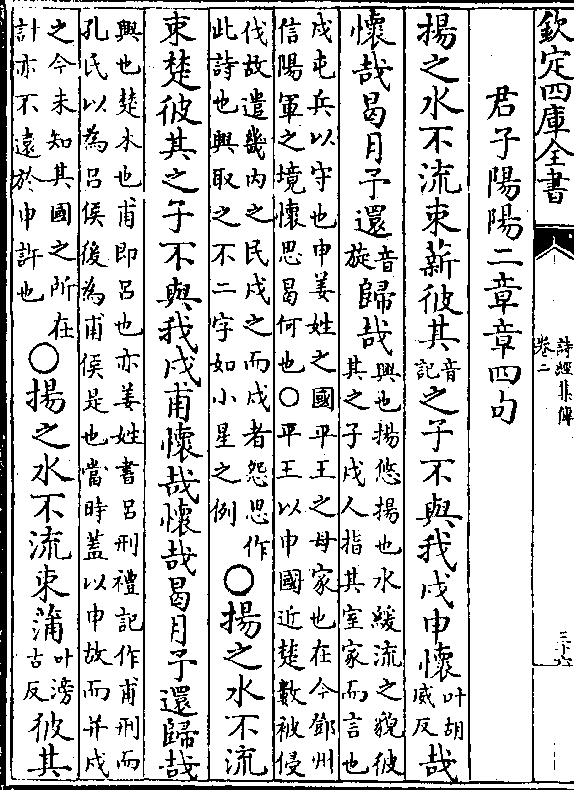 欽定四庫全書
詩經集傳
卷二
三十六
君子陽陽二章章四句
揚之水不流束薪彼其音記之子不與我戍申懷叶胡威反哉
懷哉曷月予還音旋歸哉興也揚悠揚也水緩流之貌彼
其之子戍人指其室家而言也
戍屯兵以守也申姜姓之國平王之母家也在今鄧州
信陽軍之境懷思曷何也○平王以申國近楚數被侵
伐故遣畿内之民戍之而戍者怨思作
此詩也興取之不二字如小星之例○揚之水不流
束楚彼其之子不與我戍甫懷哉懷哉曷月予還歸哉
興也楚木也甫即呂也亦姜姓書呂刑禮記作甫刑而
孔氏以為呂侯後為甫侯是也當時蓋以申故而并戍
之今未知其國之所在
計亦不遠於申許也○揚之水不流束蒲叶滂古反彼其